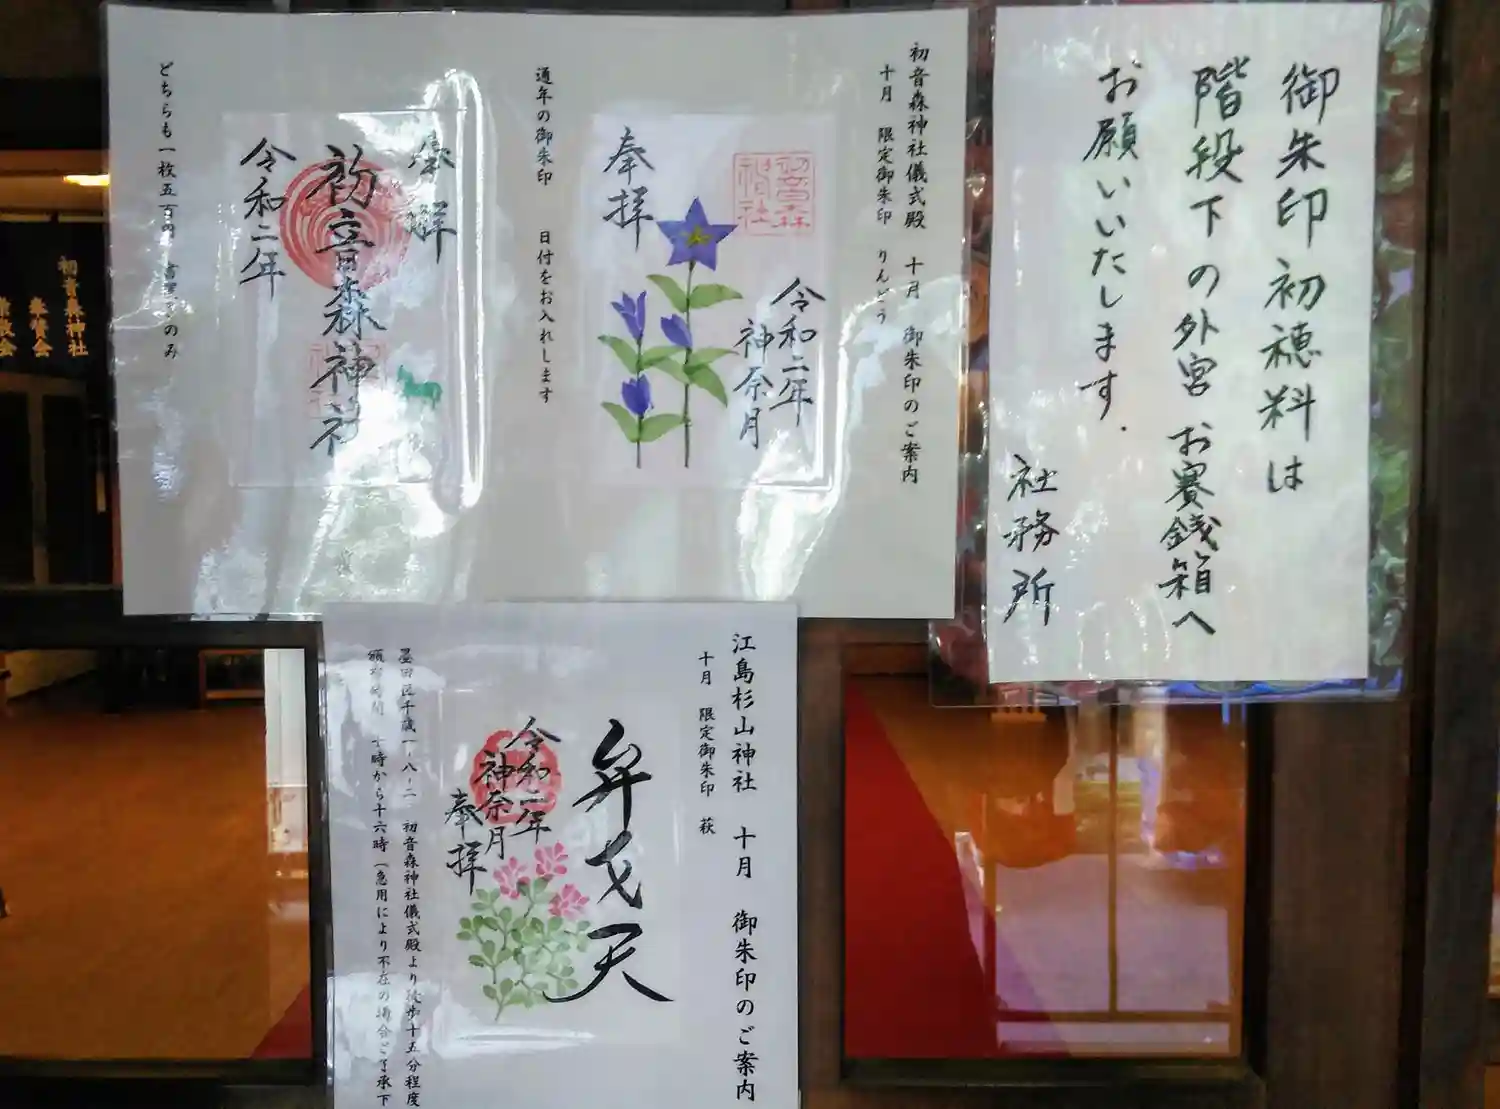 御朱印初穂料は
階段下の外宮お賽銭箱へ
お願いいたします.
社務所
初音森神社儀式殿 十月 御朱印のご案内
十月 限定御朱印 りんどう
初音森
神社
奉拝
令和二年
神奈月
通年の御朱印 日付をお入れします
奉拝
初音森神社
令和二年
どちらも一枚五百円 書置きのみ
江島杉山神社 十月 御朱印のご案内
十月 限定御朱印 萩
弁才天
令和二年
神奈月
奉拝
墨田区千歳一-八-二 初音森神社儀式殿より徒歩十五分程度
頒布時間 十時から十六時(急用により不在の場合ご了承下
初音森神社
奉賛会